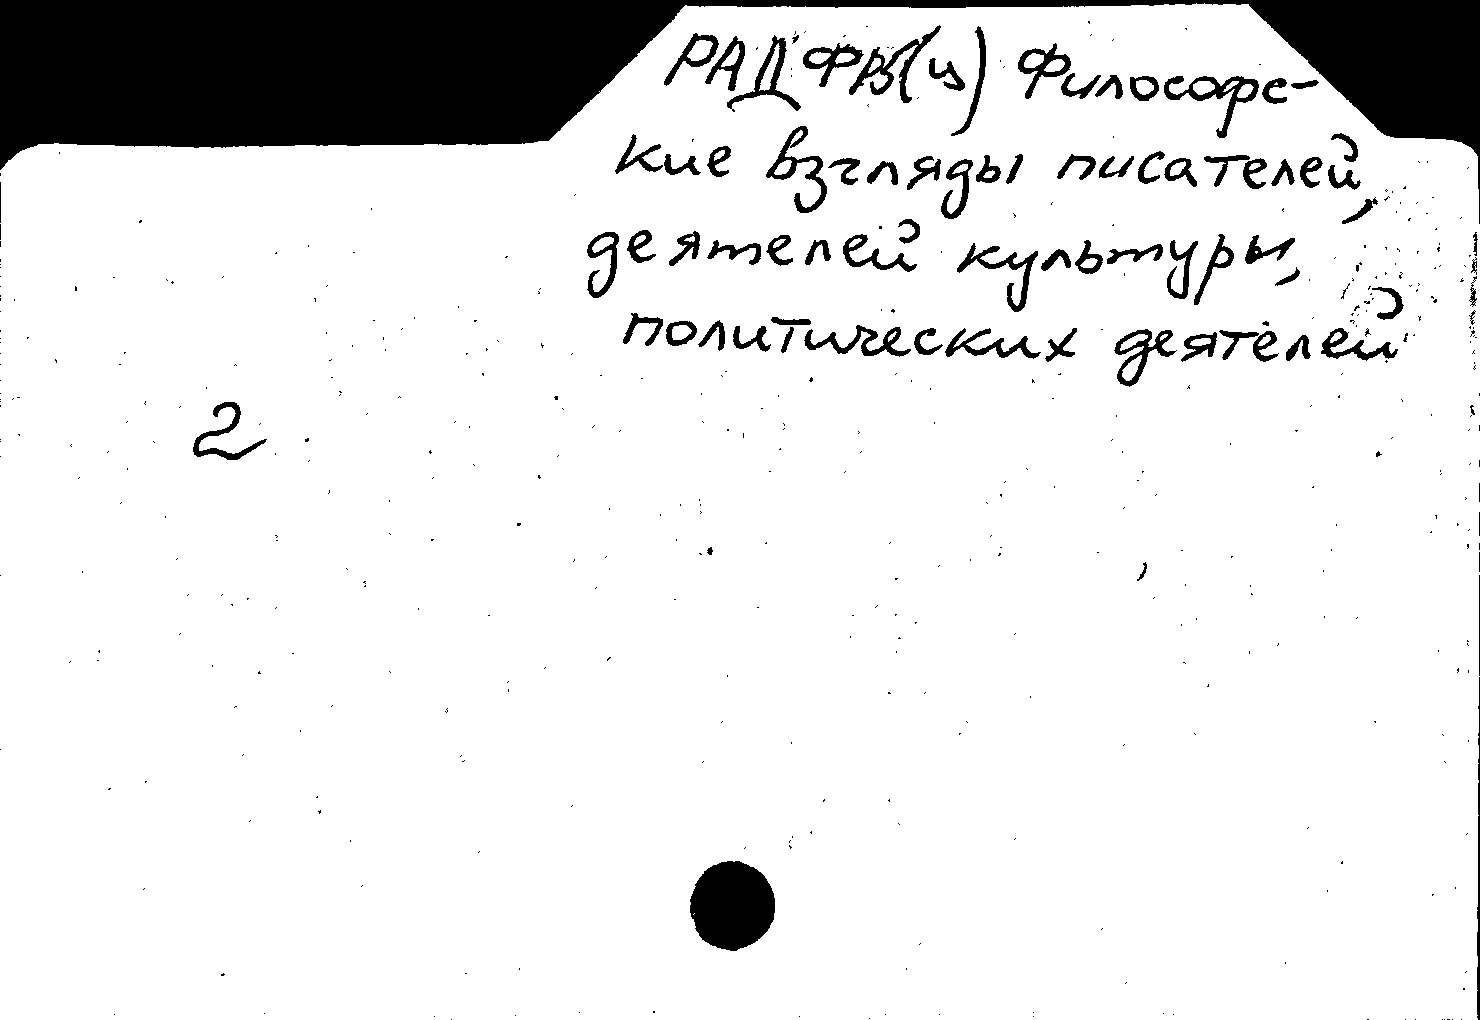 РАД ФВ(ц) Философс-
кие взгляды писателей,
деятелей культуры,
политических деятелей
2